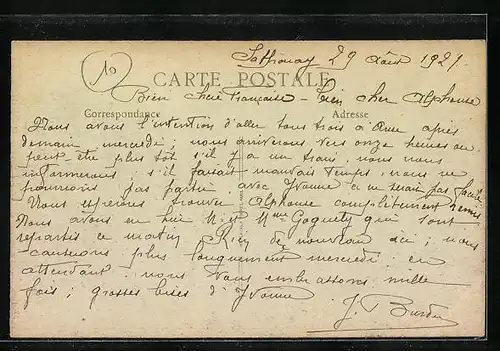 10
Sathonay 29 Août 1921
CARTE POSTALE
Bien chère Françoise - bien cher Alphonse
Correspondance Adresse
Nous avons l'intention d'aller tous trois à après
demain mercredi, nous arriverons vers onze heures ou
peut être plus tôt s'il y a un train, nous nous
informerons ; s'il faisait mauvais temps, nous ne
pourrions pas partir avec Yvonne ce ne serait pas facile
Nous espérons trouver Alphonse complètement remis
Nous avons eu hier M. et Mme Goguety qui sont
repartis ce matin Rien de nouveau ici ; nous
causerons plus longuement mercredi ; en
attendant nous vous embrassons mille
fois ; grosses bises d'Yvonne
J.